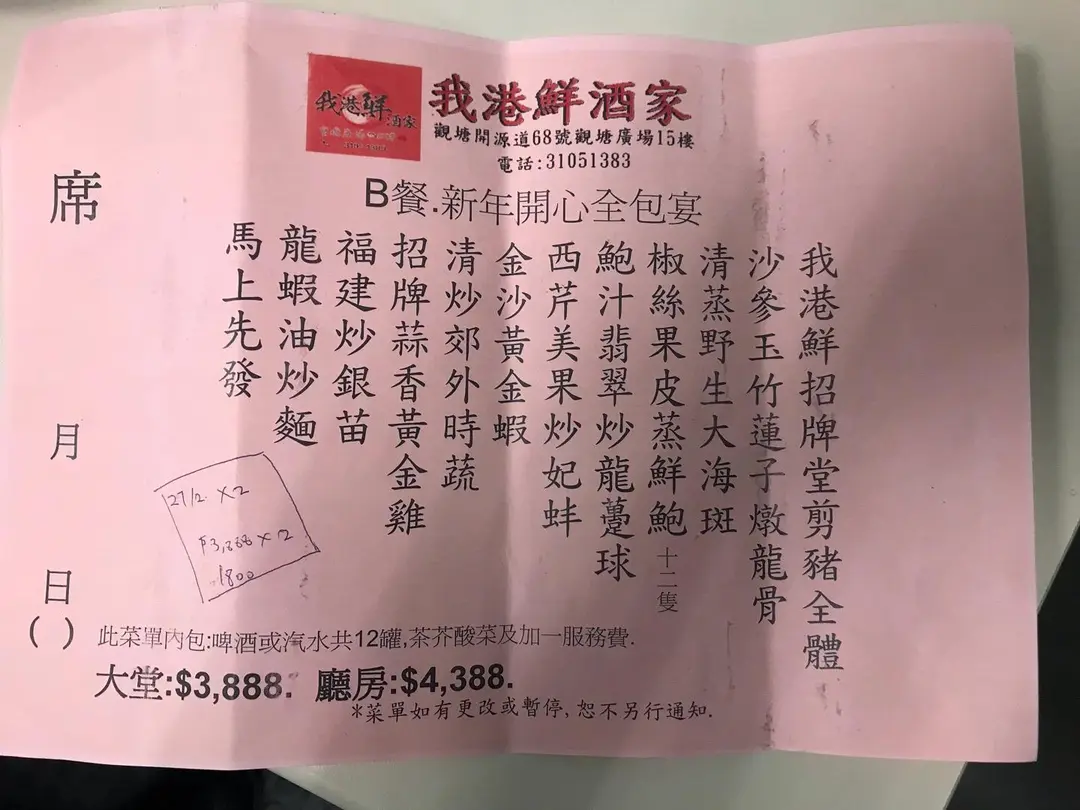 我港鮮酒家
我港鮮酒家
觀塘開源道68號觀塘廣場15樓
電話:31051383
B餐.新年開心全包宴
我港鮮招牌堂剪豬全體
沙參玉竹蓮子燉龍骨
清蒸野生大海斑
椒絲果皮蒸鮮鮑十二隻
鮑汁翡翠炒龍躉球
西芹美果炒妃蚌
金沙黃金蝦
清炒郊外時蔬
招牌蒜香黃金雞
福建炒銀苗
龍蝦油炒麵
馬上先發
席
月
日
( )
27/2 X2
$3,888 X 2
1800
此菜單內包:啤酒或汽水共12罐,茶芥酸菜及加一服務費.
大堂:$3,888. 廳房:$4,388.
*菜單如有更改或暫停,恕不另行通知.